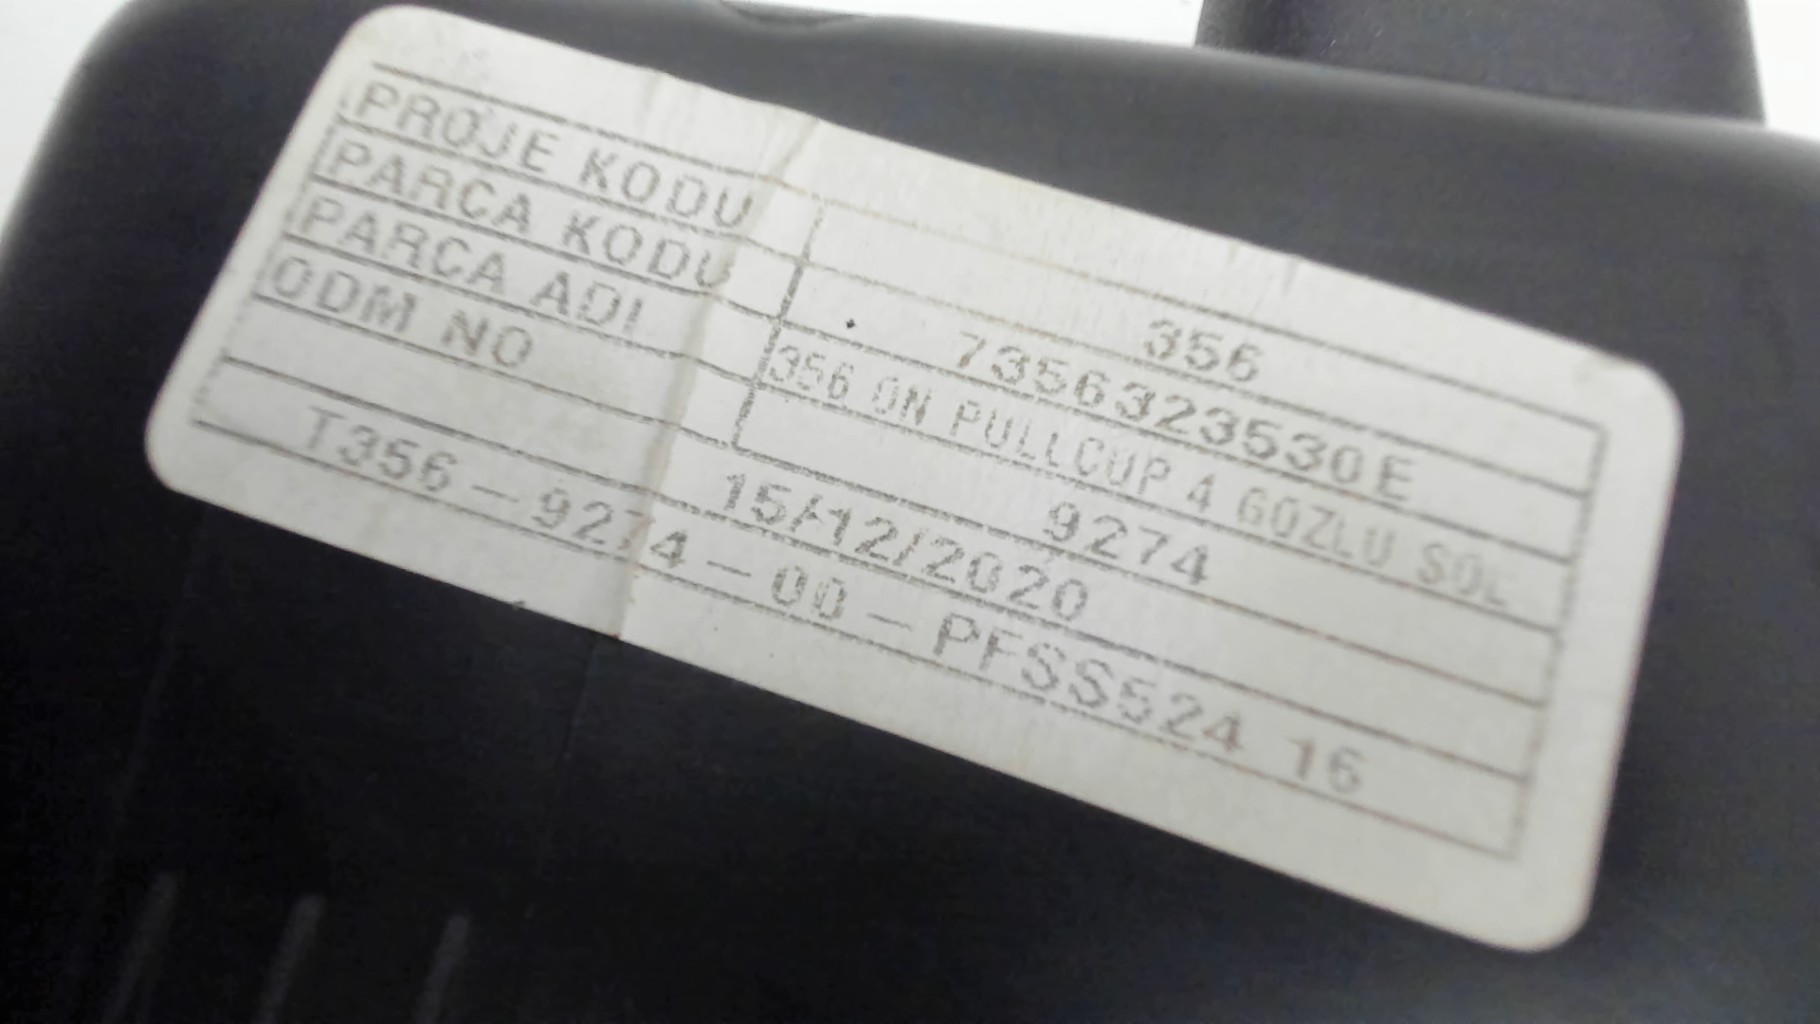 PROJE KODU 356
PARCA KODU 7356323530E
PARCA ADI 356 ON PULLCUP 4 GOZLU SOL
ODM NO 9274
15/12/2020
T356-9274-00-PFSS524 16